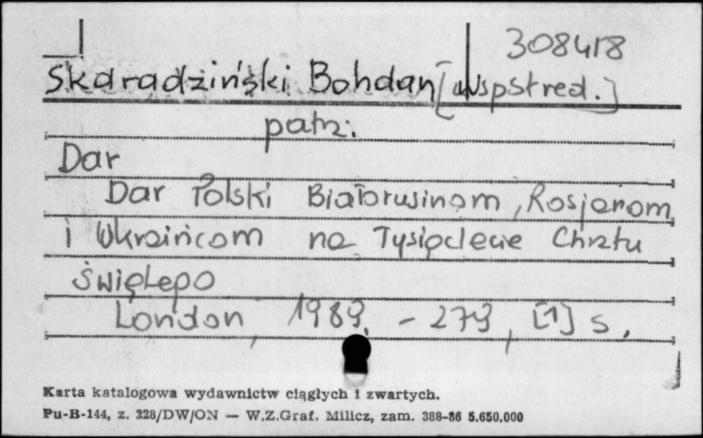 308418
Skaradziński Bohdan [współred.]
patrz:
Dar
Dar Polski Białorusinom, Rosjanom
i Ukraińcom na Tysiąclecie Chrztu
Świętego
London, 1989. - 279, [1] s.
Karta katalogowa wydawnictw ciągłych i zwartych.
Pu-B-144, z. 228/DW/ON — W.Z.Graf. Milicz, zam. 388-86 5.650.000